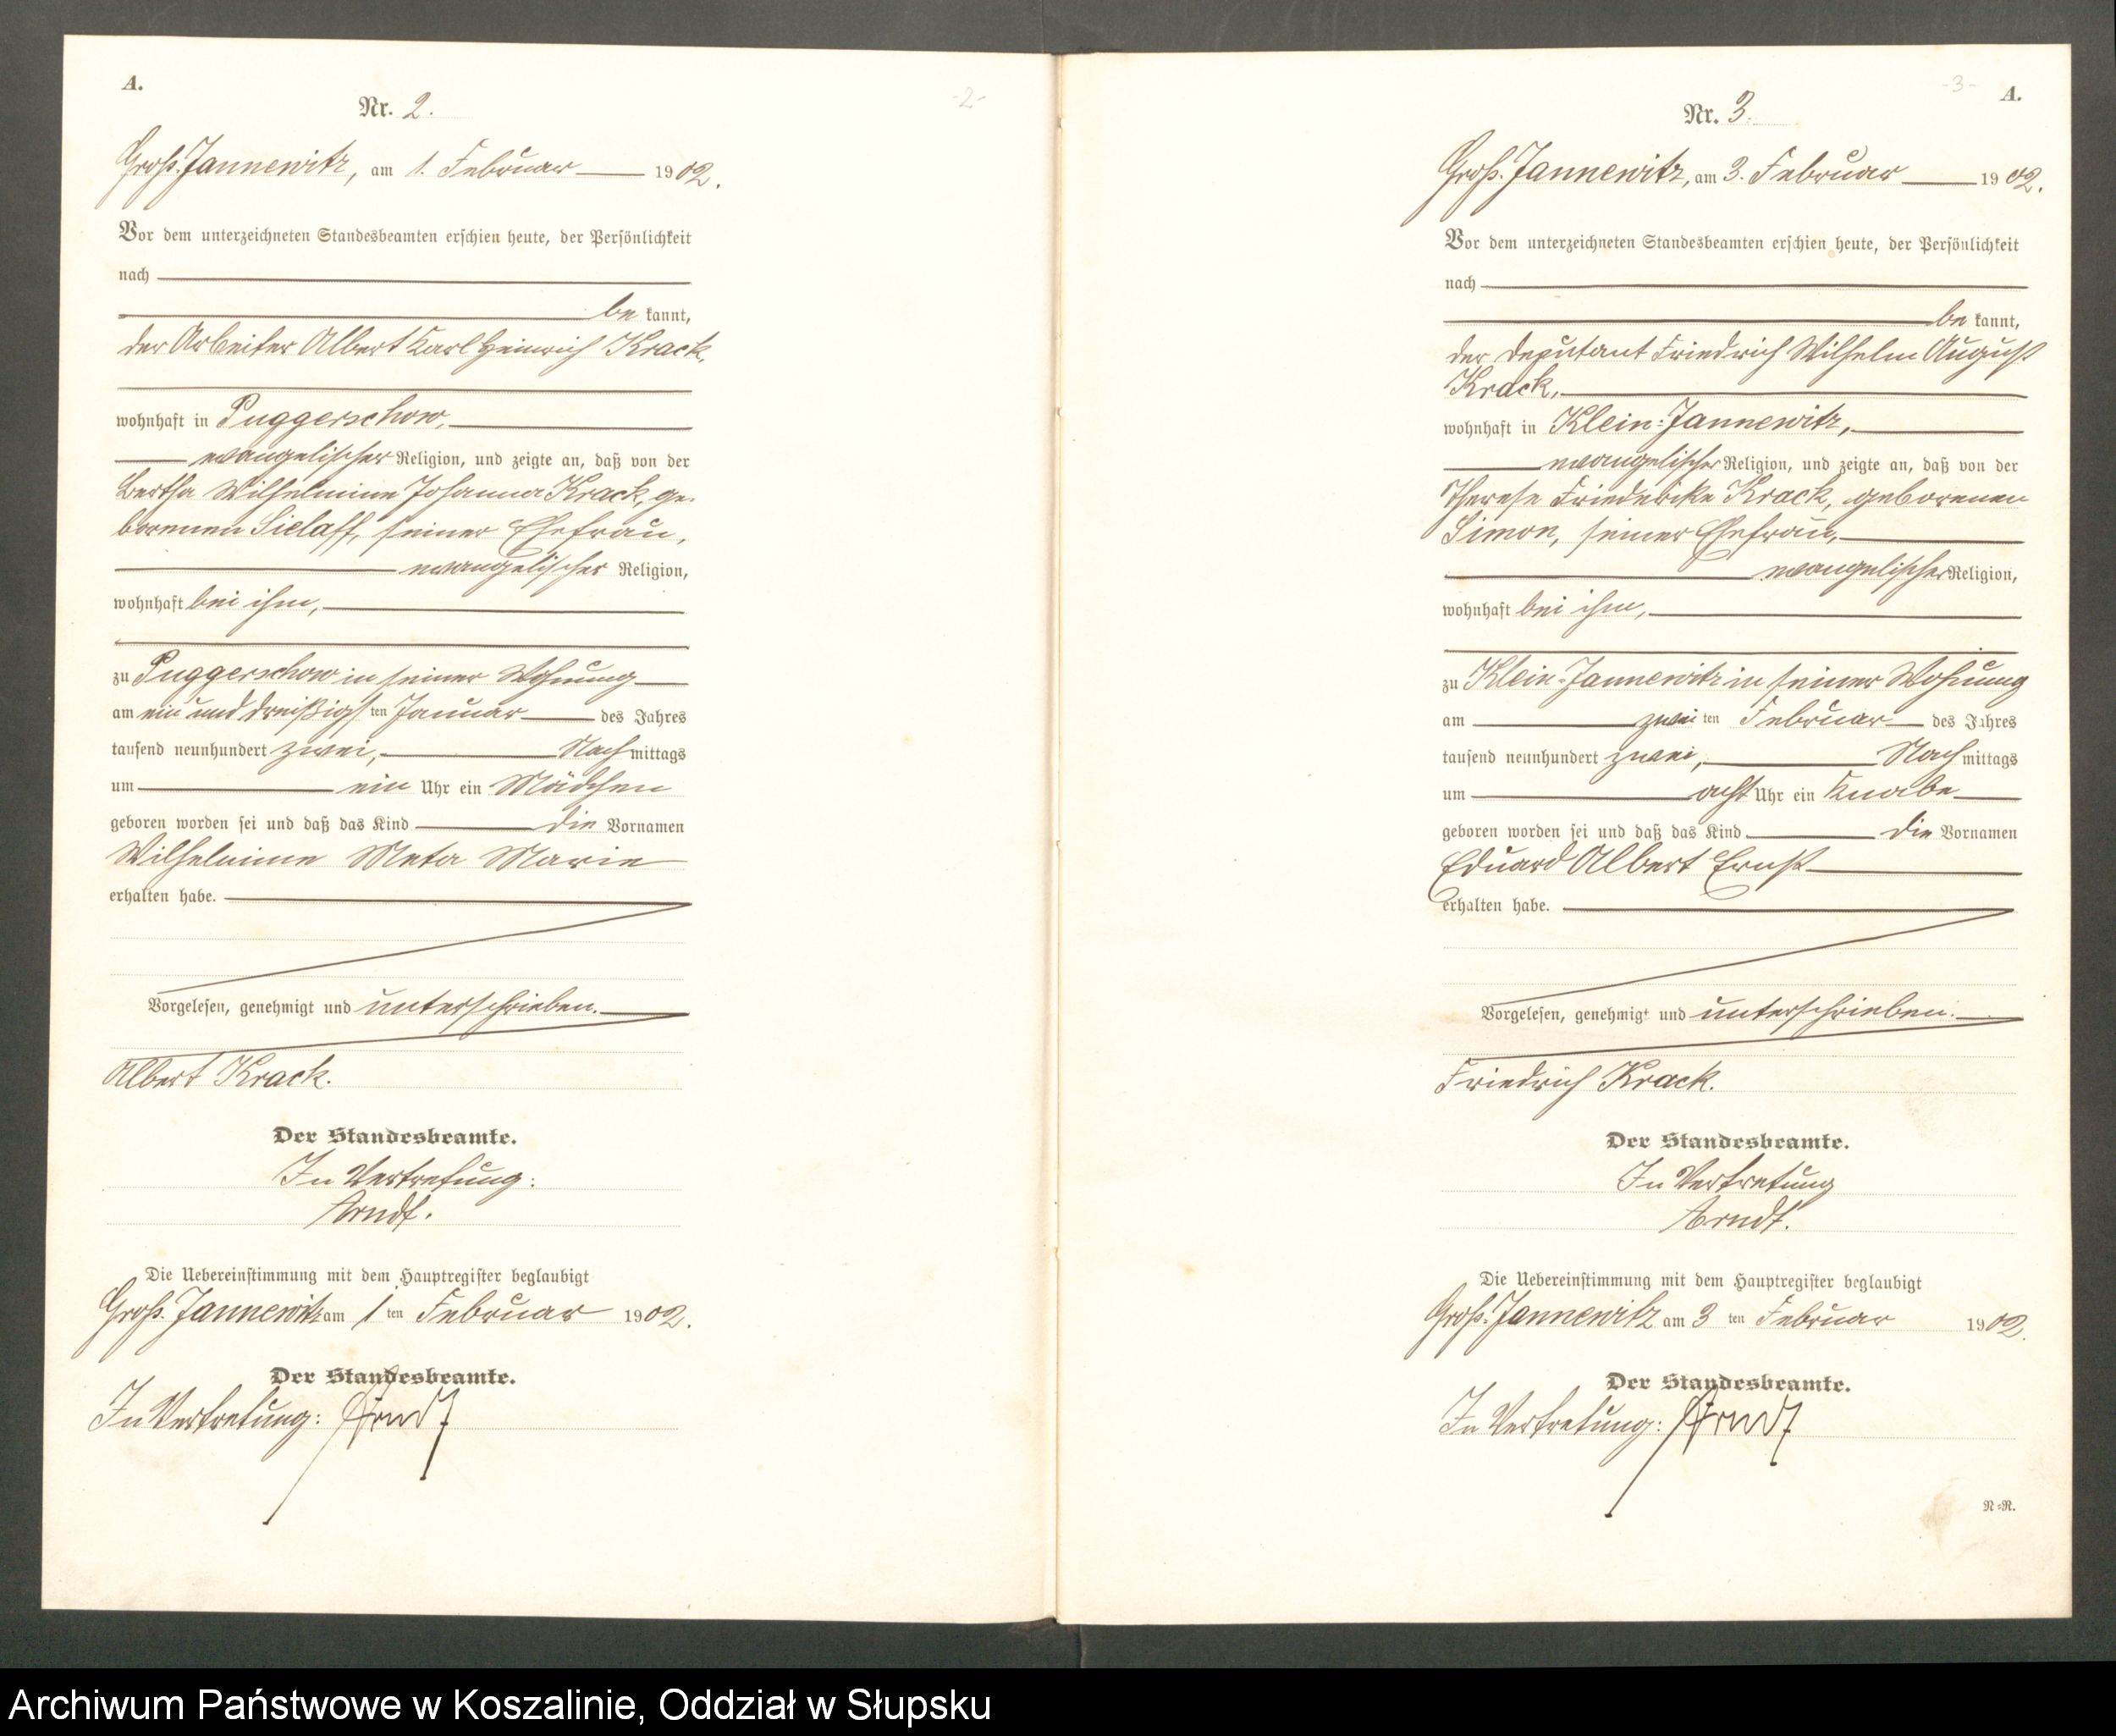 A.
Nr. 2.
-2-
Groß-Jannewitz, am 1. Februar 1902.
Vor dem unterzeichneten Standesbeamten erschien heute, der Persönlichkeit
nach
bekannt,
der Arbeiter Albert Karl Heinrich Krack,
wohnhaft in Puggerschow,
evangelischer Religion, und zeigte an, daß von der
Bertha Wilhelmine Johanna Krack, ge-
borenen Sielaff, seiner Ehefrau,
evangelischer Religion,
wohnhaft bei ihm,
zu Puggerschow in seiner Wohnung
am ein und dreißigsten Januar des Jahres
tausend neunhundert zwei, Nachmittags
um ein Uhr ein Mädchen
geboren worden sei und daß das Kind die Vornamen
Wilhelmine Meta Marie
erhalten habe.
Vorgelesen, genehmigt und unterschrieben.
Albert Krack.
Der Standesbeamte.
In Vertretung:
Arndt.
Die Uebereinstimmung mit dem Hauptregister beglaubigt
Groß-Jannewitz am 1ten Februar 1902.
Der Standesbeamte.
In Vertretung: Arndt
-3-
A.
Nr. 3.
Groß-Jannewitz, am 3. Februar 1902.
Vor dem unterzeichneten Standesbeamten erschien heute, der Persönlichkeit
nach
bekannt,
der Deputant Friedrich Wilhelm August
Krack,
wohnhaft in Klein-Jannewitz,
evangelischer Religion, und zeigte an, daß von der
Therese Friedericke Krack, geborenen
Simon, seiner Ehefrau,
evangelischer Religion,
wohnhaft bei ihm,
zu Klein-Jannewitz in seiner Wohnung
am zweiten Februar des Jahres
tausend neunhundert zwei, Nachmittags
um acht Uhr ein Knabe
geboren worden sei und daß das Kind die Vornamen
Eduard Albert Ernst
erhalten habe.
Vorgelesen, genehmigt und unterschrieben.
Friedrich Krack.
Der Standesbeamte.
In Vertretung
Arndt.
Die Uebereinstimmung mit dem Hauptregister beglaubigt
Groß-Jannewitz am 3ten Februar 1902.
Der Standesbeamte.
In Vertretung: Arndt
N=R.
Archiwum Państwowe w Koszalinie, Oddział w Słupsku